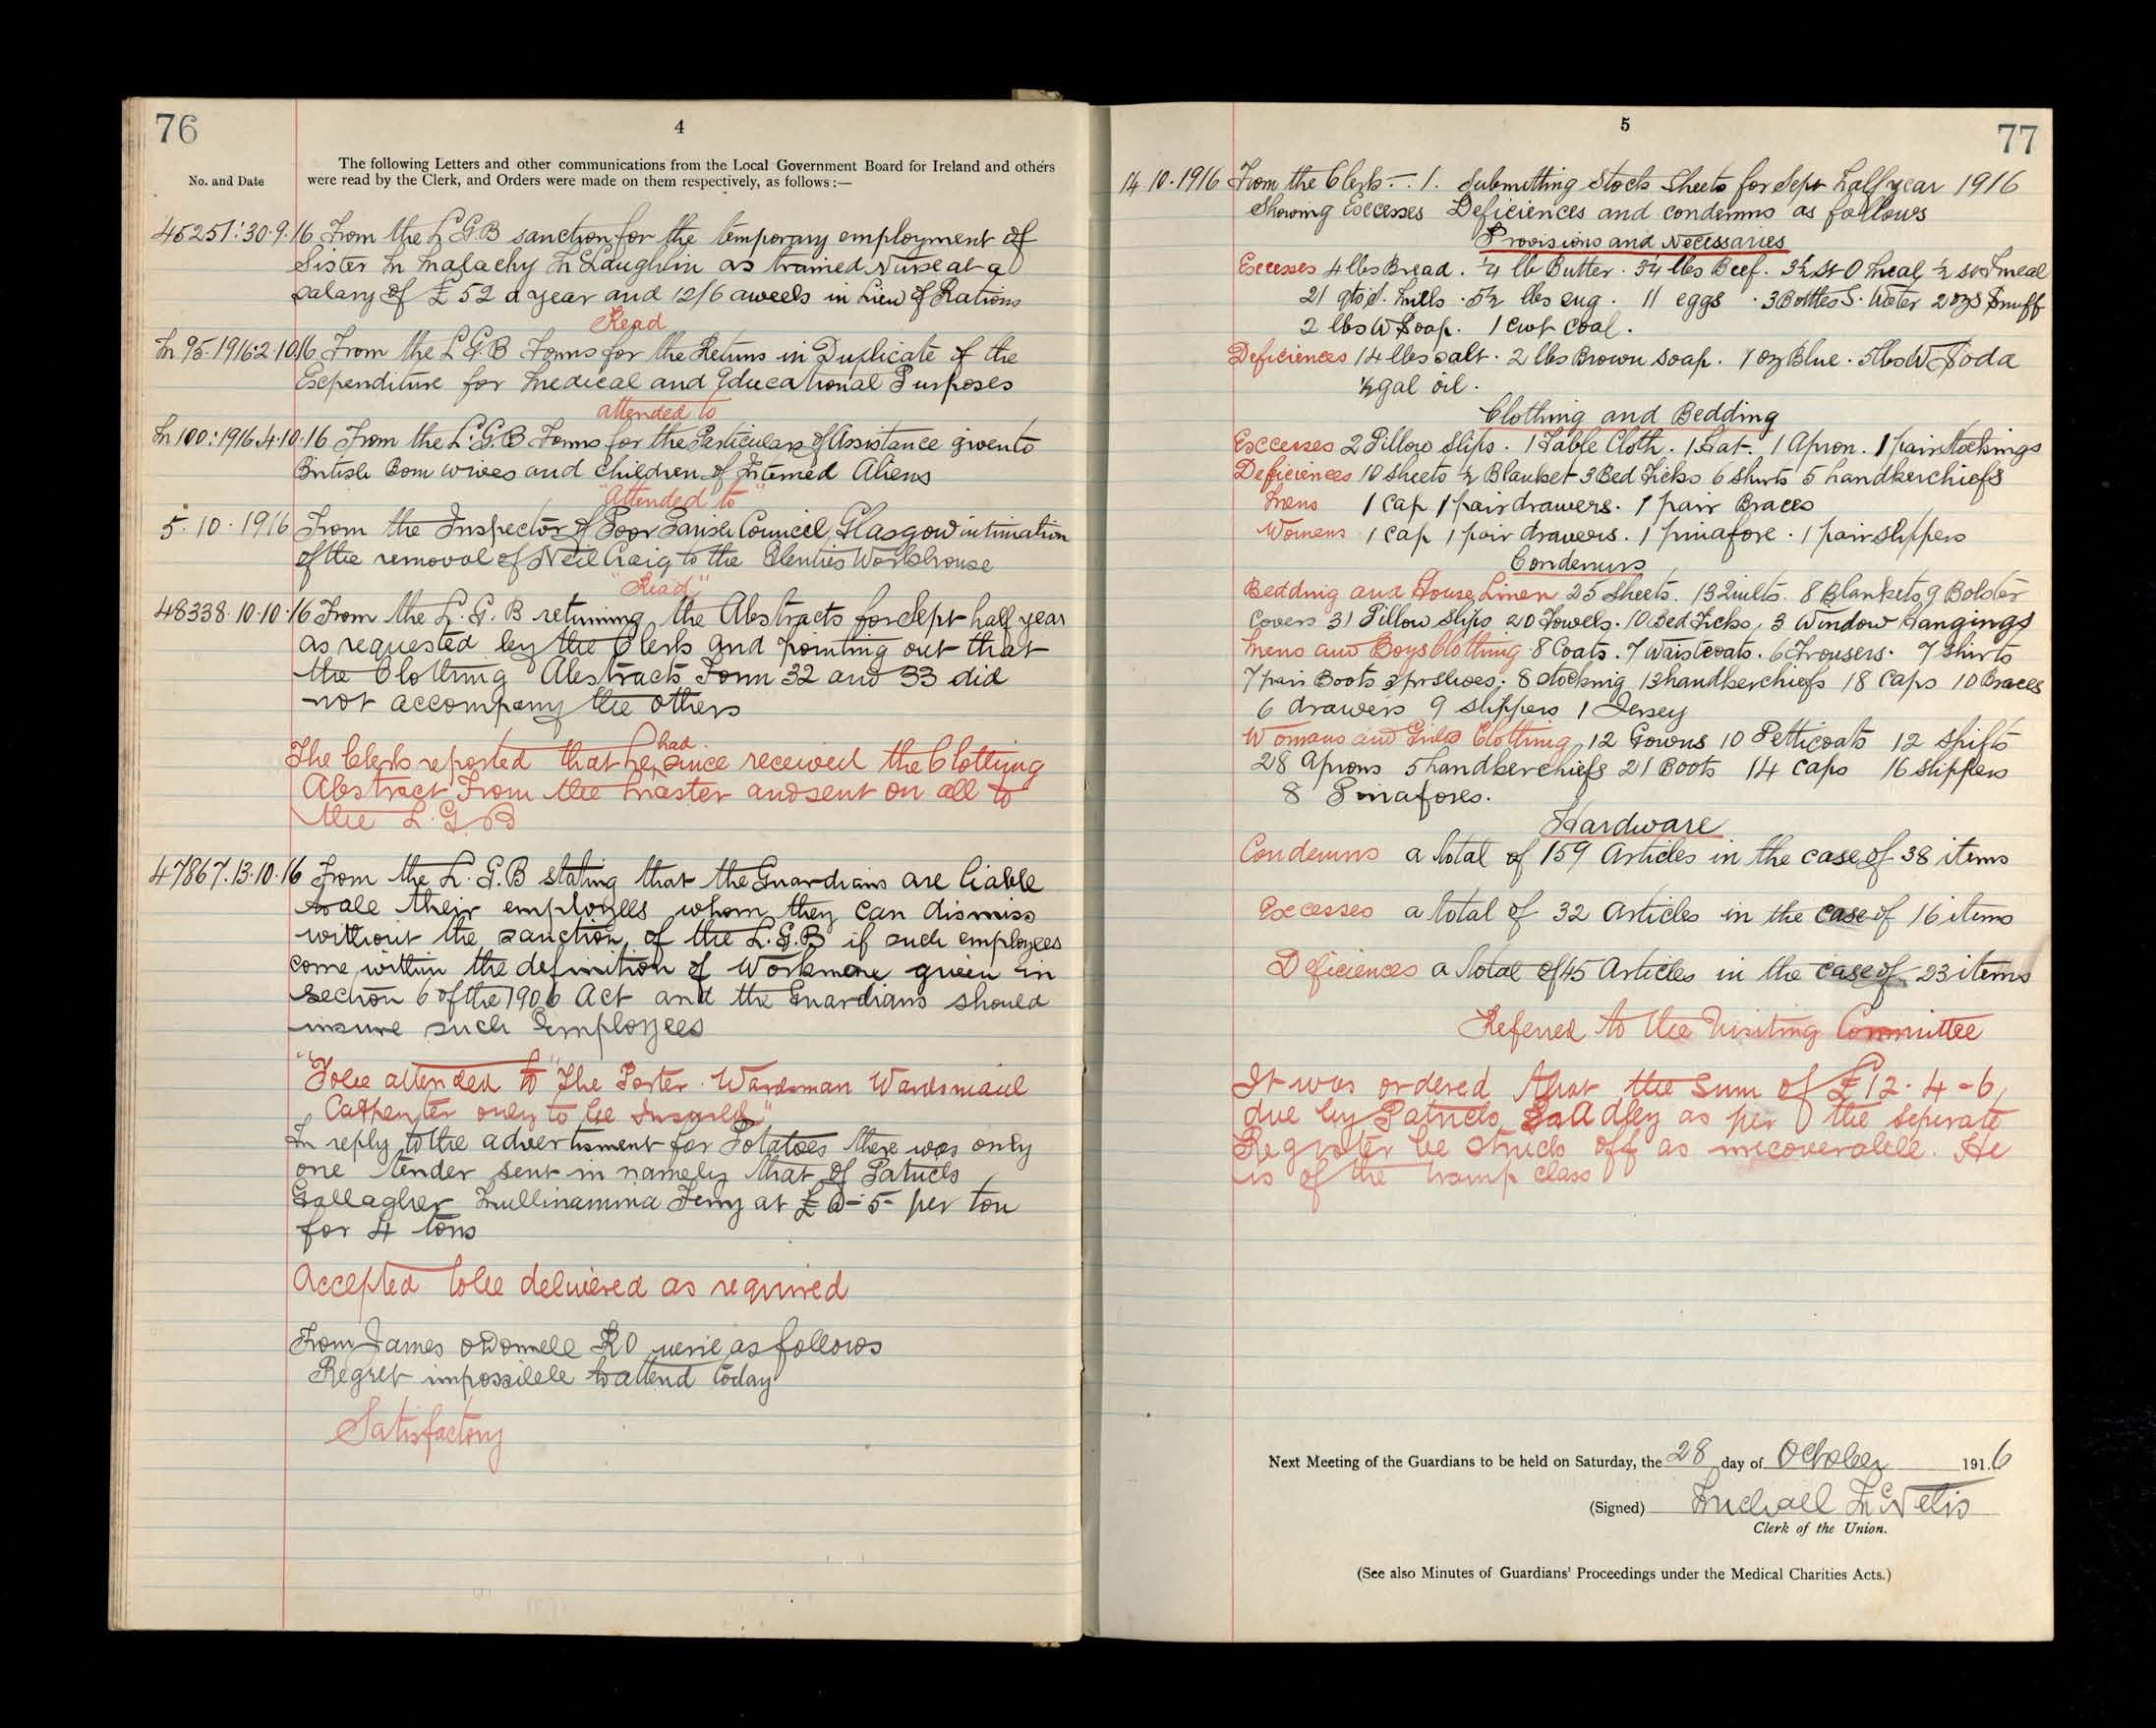 76
4
The following Letters and other communications from the Local Government Board for Ireland and others
No. and Date were read by the Clerk, and Orders were made on them respectively, as follows :—
45251:30.9.16 From the L.G.B sanction for the temporary employment of
Sister M Malachy McLaughlin as trained Nurse at a
salary of £52 a year and 12/6 a week in Lieu of Rations
Read
M 95.1916 2.10.16 From the L.G.B Forms for the Returns in Duplicate of the
Expenditure for Medical and Educational Purposes
attended to
M 100:1916.4.10.16 From the L.G.B Forms for the Particulars of Assistance given to
British Born wives and Children of Interned Aliens
"Attended to"
5.10.1916 From the Inspector of Poor Parish Council Glasgow intimation
of the removal of Neil Craig to the Glenties Workhouse
"Read"
48338.10.10.16 From the L.G.B returning the Abstracts for Sept half year
as requested by the Clerk and pointing out that
the Clothing Abstracts Form 32 and 33 did
not accompany the others
The Clerk reported that he had since received the Clothing
Abstract From the Master and sent on all to
the L.G.B
47867.13.10.16 From the L.G.B stating that the Guardians are liable
to all their employees whom they can dismiss
without the sanction of the L.G.B if such employees
come within the definition of Workmen given in
Section 6 of the 1906 Act and the Guardians should
insure such Employees
"To be attended to" The Porter. Wardsman Wardsmaid
Carpenter only to be Insured"
In reply to the advertisment for Potatoes there was only
one tender sent in namely that of Patrick
Gallagher Mullinamina Ferry at £6-5- per ton
for 4 tons
Accepted to be delivered as required
From James O'Donnell RO as follows
Regret impossible to attend today
Satisfactory
5
77
14.10.1916 From the Clerk :- 1. Submitting Stock Sheets for Sept half year 1916
Showing Excesses Deficiences and condemns as follows
Provisions and Necessaries
Excesses 4 lbs Bread. ¼ lb Butter. 3¼ lbs Beef. 3½ St O Meal ½ St I meal
21 qts d. Milk. 5½ lbs sug. 11 eggs. 3 Bottles S. Water 2 ozs Snuff
2 lbs W Soap. 1 cwt coal.
Deficiences 14 lbs salt. 2 lbs Brown soap. 1 oz Blue. 5 lbs W Soda
½ gal oil.
Clothing and Bedding
Exccesses 2 Pillow slips. 1 Table Cloth. 1 Hat. 1 Apron. 1 pair stockings
Deficiences 10 Sheets ½ Blanket 3 Bed Ticks 6 shirts 5 handkerchiefs
Mens 1 cap 1 pair drawers. 1 pair Braces
Womens 1 cap 1 pair drawers. 1 pinafore. 1 pair slippers
Condemns
Bedding and House Linen 25 sheets. 13 Quilts. 8 Blankets 9 Bolster
Covers 31 Pillow slips 20 Towels. 10 Bed Ticks. 3 Window Hangings
Mens and Boys Clothing 8 Coats. 7 Waistcoats. 6 Trousers. 7 shirts
7 pair Boots 3 pr shoes. 8 stocking 13 handkerchiefs 18 Caps 10 Braces
6 drawers 9 slippers 1 Jersey
Womans and Girls Clothing 12 Gowns 10 Petticoats 12 shifts
28 Aprons 5 handkerchiefs 21 Boots 14 caps 16 slippers
8 Pinafores.
Hardware
Condemns a total of 159 Articles in the case of 38 items
Excesses a total of 32 Articles in the case of 16 items
Deficiences a total of 45 Articles in the case of 23 items
Referred to the Visiting Committee
It was ordered that the sum of £12.4-6
due by Patrick as per the seperate
Register be struck off as irrecoverable. He
is of the tramp class
Next Meeting of the Guardians to be held on Saturday, the 28 day of October 1916
(Signed) Michael McNelis
Clerk of the Union.
(See also Minutes of Guardians' Proceedings under the Medical Charities Acts.)